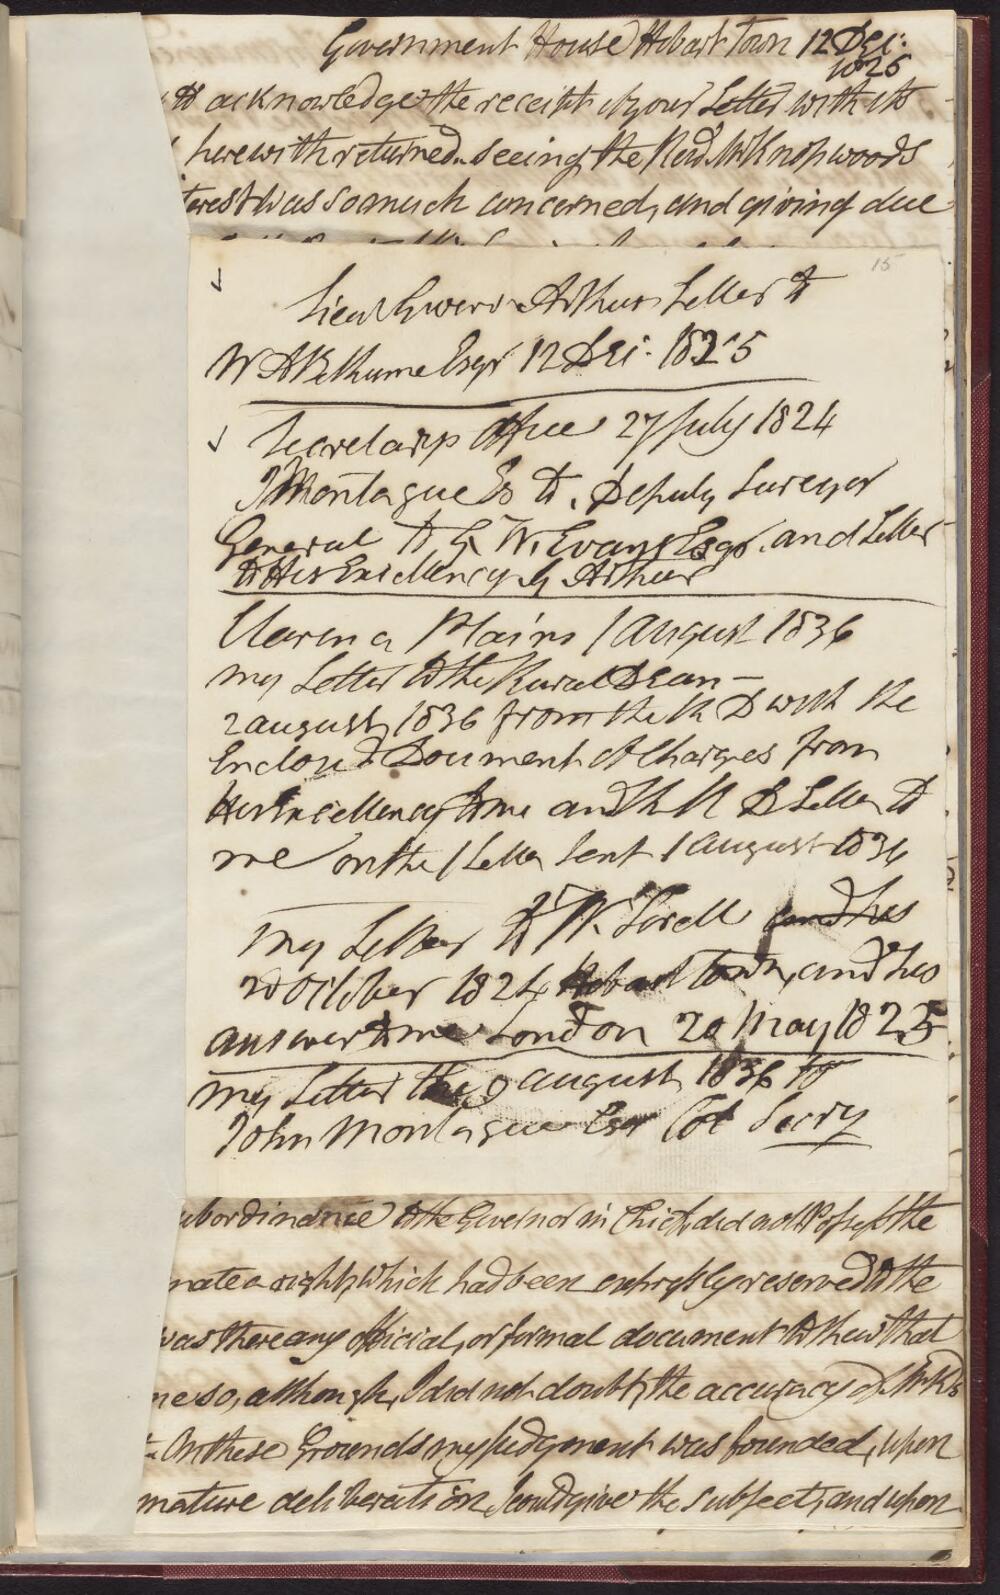 Government House Hobart Town 12 Dec:
1825
to acknowledge the receipt of your Letter with its
herewith returned. seeing the Revd. Mr Knopwoods
terest was so much concerned, and giving due
15
Lieut Govern Arthur Letter to
W A Bethune Esqr 12 Dec. 1825
Secretarys Office 27 July 1824
J Montague Es to. Deputy Surveyor
General to G. W. Evans Esqr. and Letter
to His Excellency G Arthur
Clarence Plains 1 August 1836
my Letter to the Rural Dean –
2 august 1836 from the R D with the
Enclosd Document of Charges from
His Excellency to me and the R D Letter to
me on the / Letter sent 1 August 1836
my Letter to W. Sorell and his
20 October 1824 Hobart Town, and his
answer to me London 20 May 1825
my Letter the 9 august 1836 to
John Montague Esqr Col Secry
ubordinance to the Governor in Chief, did not Possess the
nate a right, which had been expressly reserved to the
was there any official, or formal document to shew that
me so, although, I did not doubt, the accuracy of Mr Ks
On these Grounds my judgment was founded, upon
mature deliberation I could give the subject, and upon